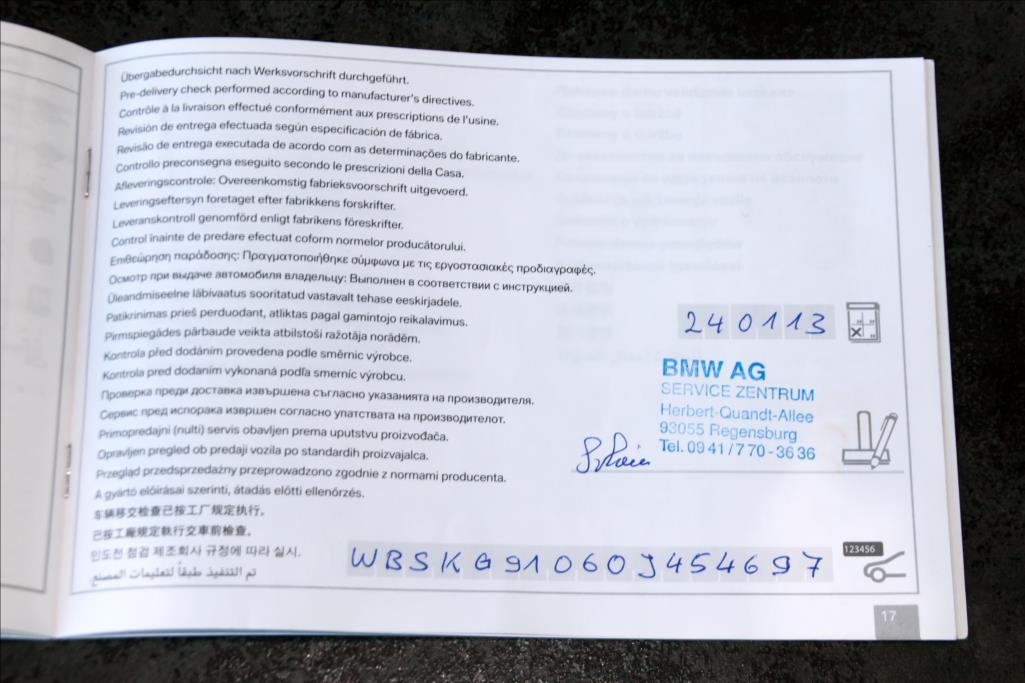 Übergabedurchsicht nach Werksvorschrift durchgeführt.
Pre-delivery check performed according to manufacturer's directives.
Contrôle à la livraison effectué conformément aux prescriptions de l'usine.
Revisión de entrega efectuada según especificación de fábrica.
Revisão de entrega executada de acordo com as determinações do fabricante.
Controllo preconsegna eseguito secondo le prescrizioni della Casa.
Afleveringscontrole: Overeenkomstig fabrieksvoorschrift uitgevoerd.
Leveringseftersyn foretaget efter fabrikkens forskrifter.
Leveranskontroll genomförd enligt fabrikens föreskrifter.
Control înainte de predare efectuat coform normelor producătorului.
Επιθεώρηση παράδοσης: Πραγματοποιήθηκε σύμφωνα με τις εργοστασιακές προδιαγραφές.
Осмотр при выдаче автомобиля владельцу: Выполнен в соответствии с инструкцией.
Üleandmiseelne läbivaatus sooritatud vastavalt tehase eeskirjadele.
Patikrinimas prieš perduodant, atliktas pagal gamintojo reikalavimus.
Pirmspiegādes pārbaude veikta atbilstoši ražotāja norādēm.
Kontrola před dodáním provedena podle směrnic výrobce.
Kontrola pred dodaním vykonaná podľa smerníc výrobcu.
Проверка преди доставка извършена съгласно указанията на производителя.
Сервис пред испорака извршен согласно упатствата на производителот.
Primopredajni (nulti) servis obavljen prema uputstvu proizvođača.
Opravljen pregled ob predaji vozila po standardih proizvajalca.
Przegląd przedsprzedażny przeprowadzono zgodnie z normami producenta.
A gyártó előírásai szerinti, átadás előtti ellenőrzés.
车辆移交检查已按工厂规定执行。
已按工廠規定執行交車前檢查。
인도전 점검 제조회사 규정에 따라 실시.
تم التنفيذ طبقاً لتعليمات المصنع.
240113
BMW AG
SERVICE ZENTRUM
Herbert-Quandt-Allee
93055 Regensburg
Tel. 09 41 / 7 70 - 36 36
WBSKG91060J454697
123456
17